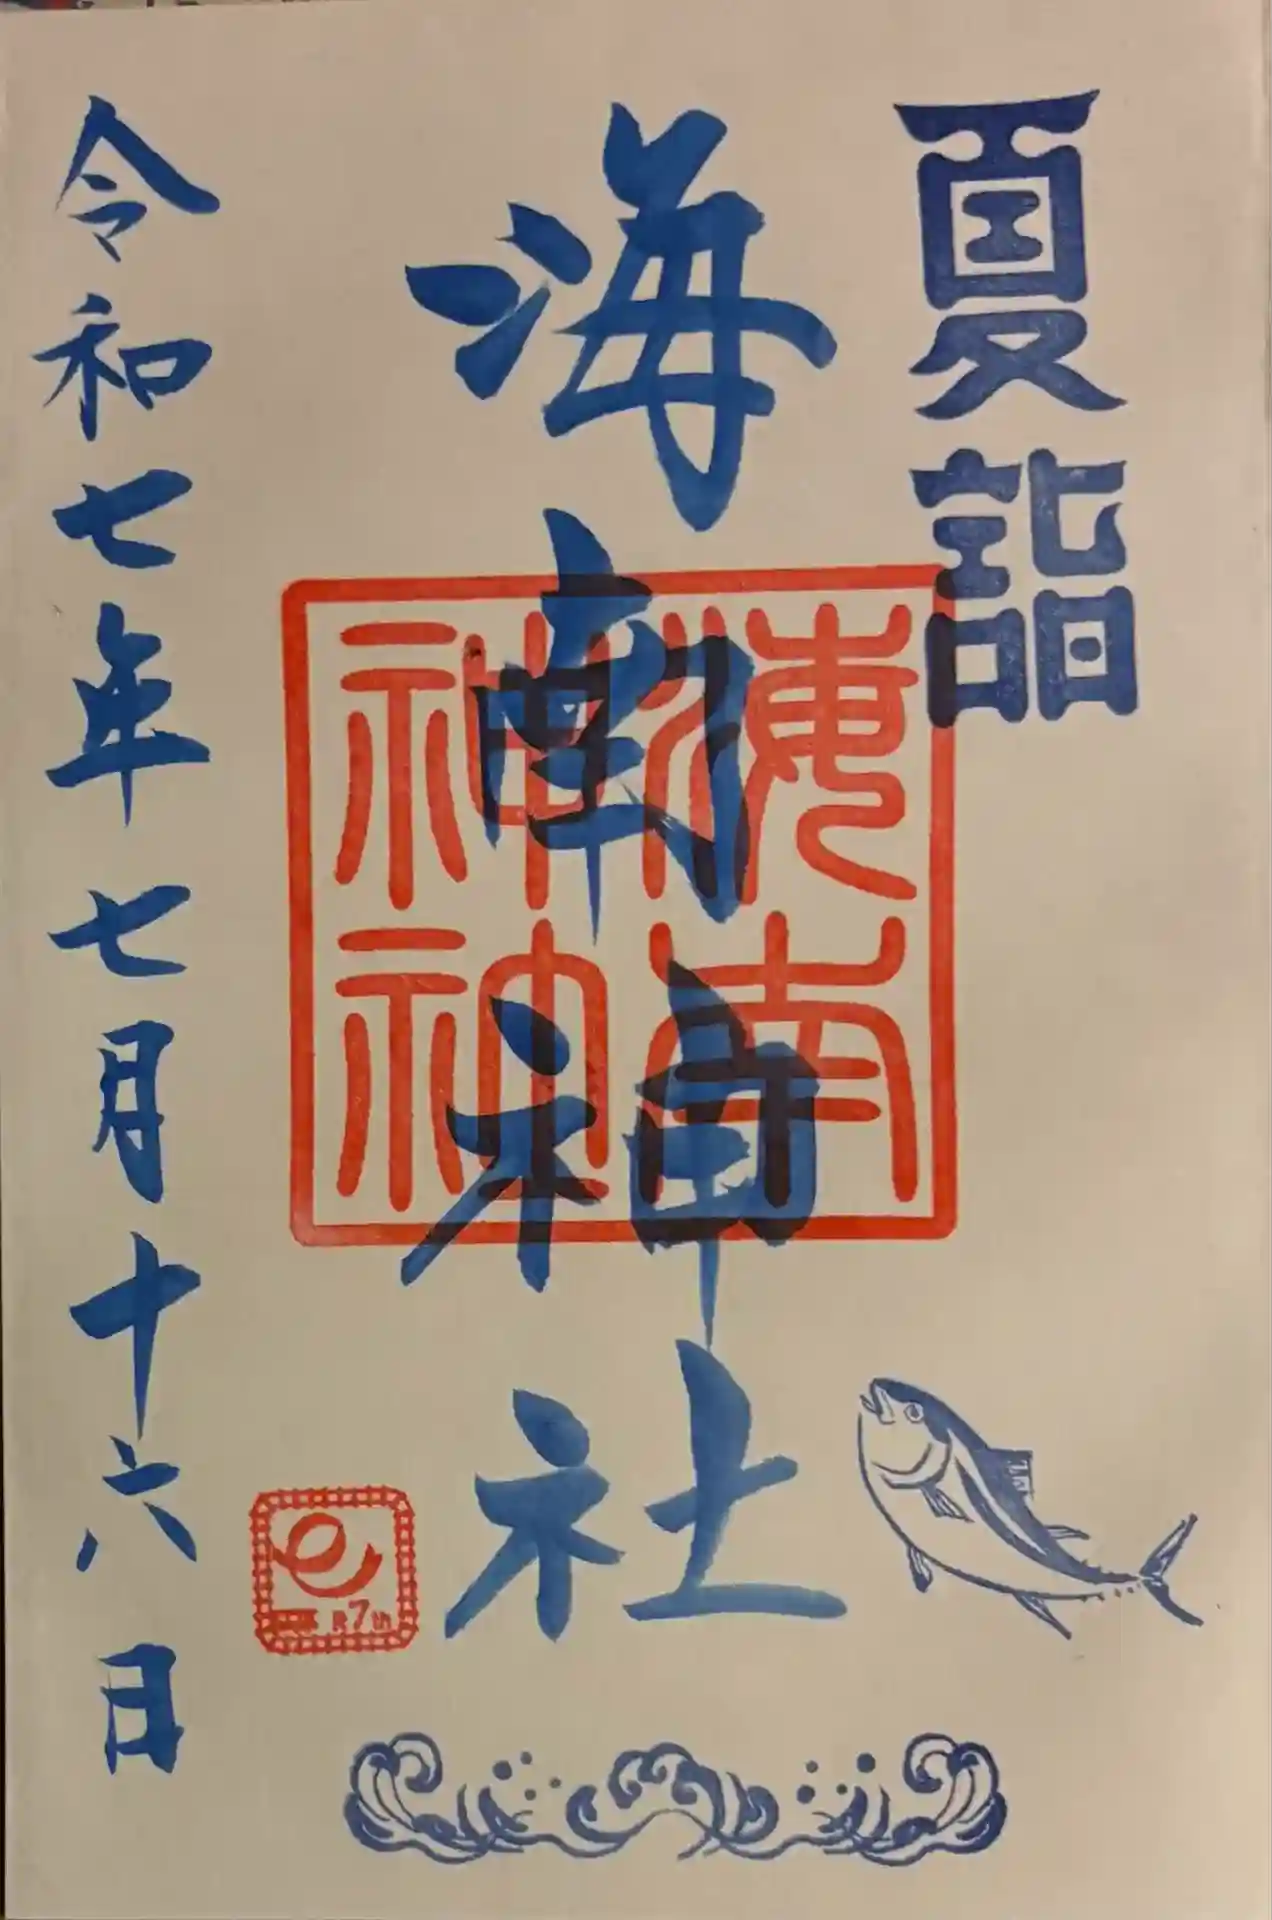 夏詣
海南神社
海南神社
令和七年七月十六日
7th